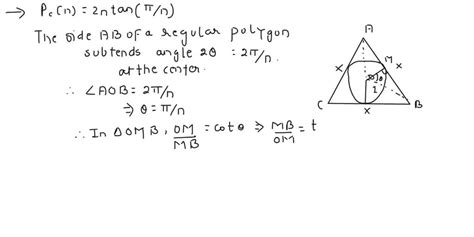 → Pc(n) = 2n tan(π/n)
The side AB of a regular polygon
subtends angle 2θ = 2π/n
at the center.
∴ ∠AOB = 2π/n
⇒ θ = π/n
∴ In △OMB, OM/MB = cotθ ⇒ MB/OM = t
A
M
x
x
θ
1
C
x
B